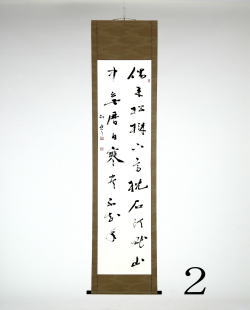 偶来松樹下高枕石頭眠山
中無暦日寒尽不知年
2